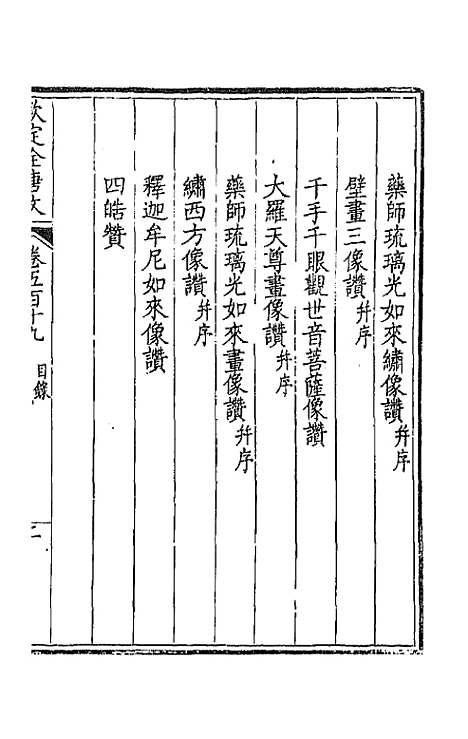 藥師琉璃光如來繡像讚并序
壁畫三像讚并序
千手千眼觀世音菩薩像讚
大羅天尊畫像讚并序
藥師琉璃光如來畫像讚并序
繡西方像讚并序
釋迦牟尼如來像讚
四皓贊
欽定全唐文
卷五百十九 目錄